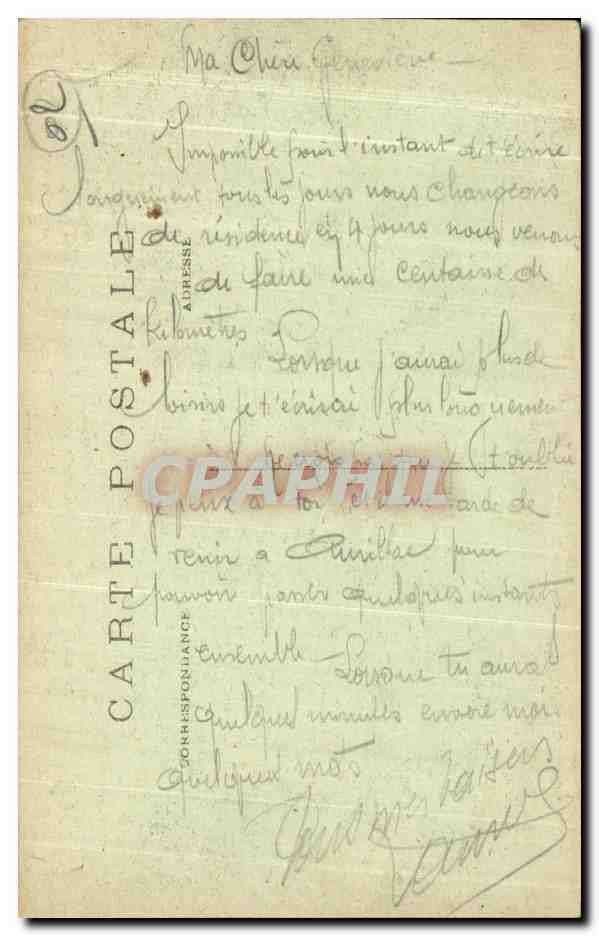 Ma Chèri Geneviève
82
Imposible pour l'instant de t'écrire
longuement tous les jours nous changeons
de résidence en 4 jours nous venons
de faire une centaine de
kilomètres Lorsque j'aurai plus de
loisirs je t'écrirai plus longuement
t'oublie
je peux à toi de
venir a Aurillac pour
pouvoir passer quelques instants
ensemble Lorsque tu auras
quelques minutes envoie moi
quelques mots
Tous mes baisers
CARTE POSTALE
CORRESPONDANCE
ADRESSE
CPAPHIL